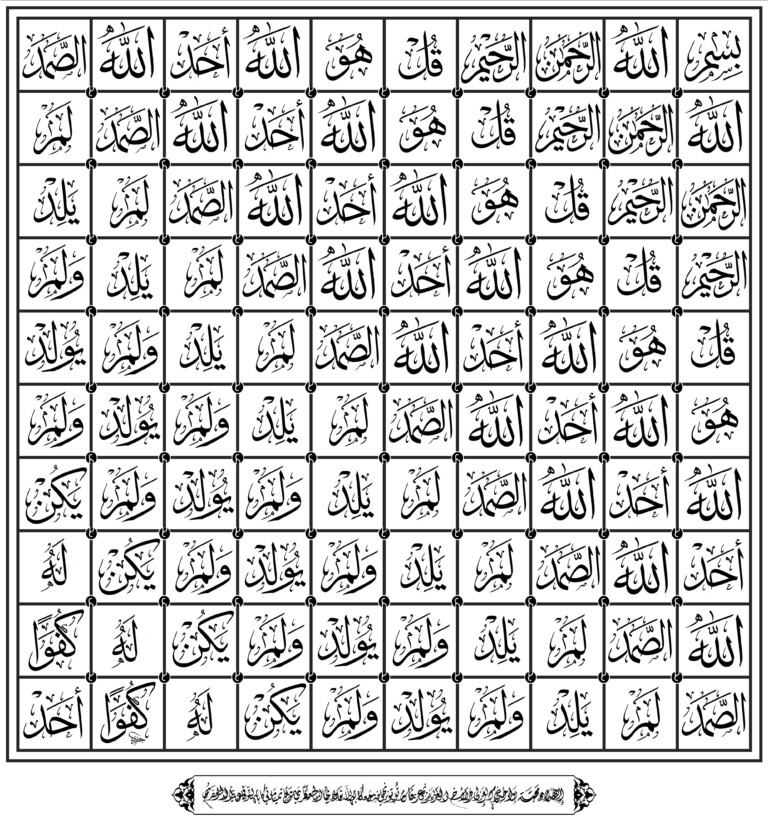 بِسْمِ اللّٰه الرَّحْمٰن الرَّحِيْم قُلْ هُوَ اللّٰه أَحَدْ اللّٰه الصَّمَد
اللّٰه الرَّحْمٰن الرَّحِيْم قُلْ هُوَ اللّٰه أَحَدْ اللّٰه الصَّمَد لَمْ
الرَّحْمٰن الرَّحِيْم قُلْ هُوَ اللّٰه أَحَدْ اللّٰه الصَّمَد لَمْ يَلِدْ
الرَّحِيْم قُلْ هُوَ اللّٰه أَحَدْ اللّٰه الصَّمَد لَمْ يَلِدْ وَلَمْ
قُلْ هُوَ اللّٰه أَحَدْ اللّٰه الصَّمَد لَمْ يَلِدْ وَلَمْ يُولَدْ
هُوَ اللّٰه أَحَدْ اللّٰه الصَّمَد لَمْ يَلِدْ وَلَمْ يُولَدْ وَلَمْ
اللّٰه أَحَدْ اللّٰه الصَّمَد لَمْ يَلِدْ وَلَمْ يُولَدْ وَلَمْ يَكُنْ
أَحَدْ اللّٰه الصَّمَد لَمْ يَلِدْ وَلَمْ يُولَدْ وَلَمْ يَكُنْ لَهُ
اللّٰه الصَّمَد لَمْ يَلِدْ وَلَمْ يُولَدْ وَلَمْ يَكُنْ لَهُ كُفُوًا
الصَّمَد لَمْ يَلِدْ وَلَمْ يُولَدْ وَلَمْ يَكُنْ لَهُ كُفُوًا أَحَدْ